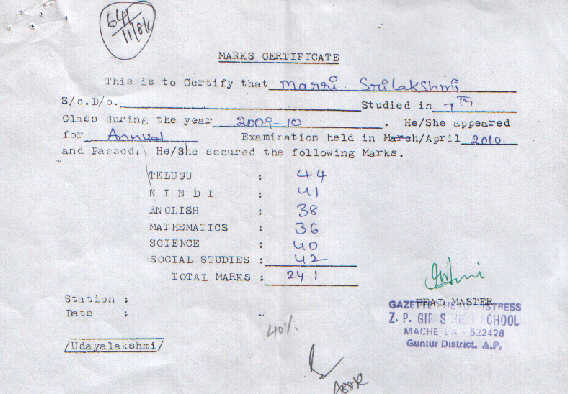 MARKS CERTIFICATE
This is to Certify that Marri. Srilakshmi
S/o.D/o. Studied in 7th
Class during the year 2009-10. He/She appeared
for Annual Examination held in March/April 2010
and Passed. He/She secured the following Marks.
TELUGU : 44
HINDI : 41
ENGLISH : 38
MATHEMATICS : 36
SCIENCE : 40
SOCIAL STUDIES : 42
TOTAL MARKS : 241
Station :
Date :
HEAD MASTER
GAZETTED
Z. P. GIRLS HIGH SCHOOL
522426
Guntur District, A.P.
40%
/Udayalakshmi/